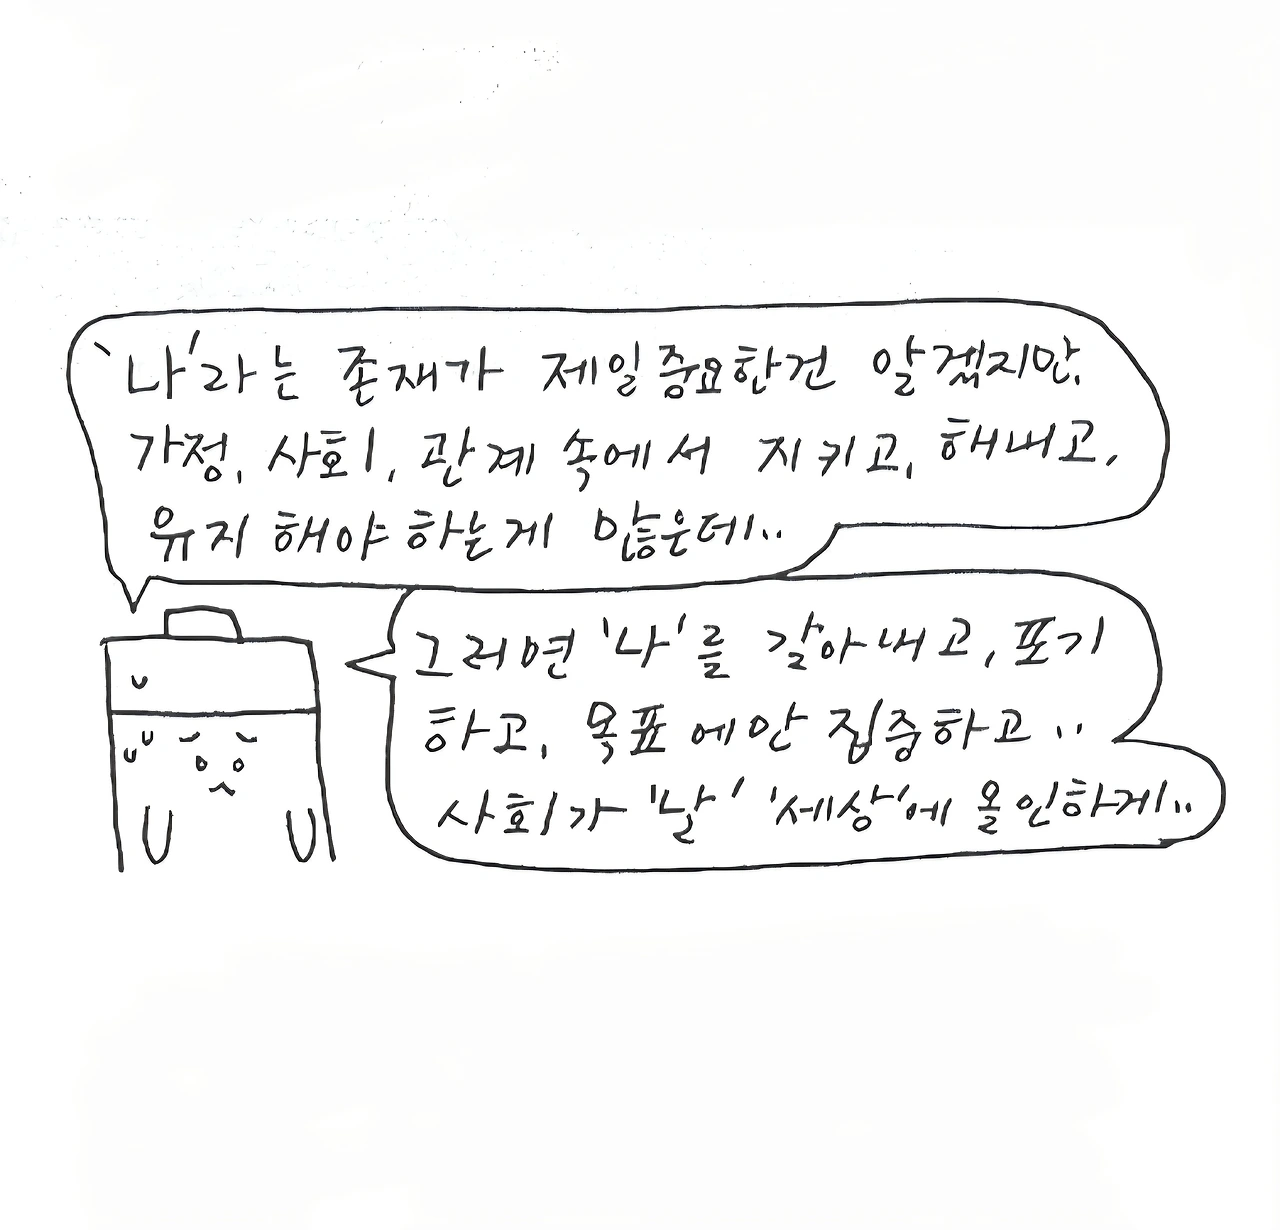 '나'라는 존재가 제일 중요한건 알겠지만,
가정, 사회, 관계 속에서 지키고, 해내고,
유지 해야 하는게 많은데..
그러면 '나'를 갈아내고, 포기
하고, 목표에만 집중하고..
사회가 '날' '세상'에 올인하게..